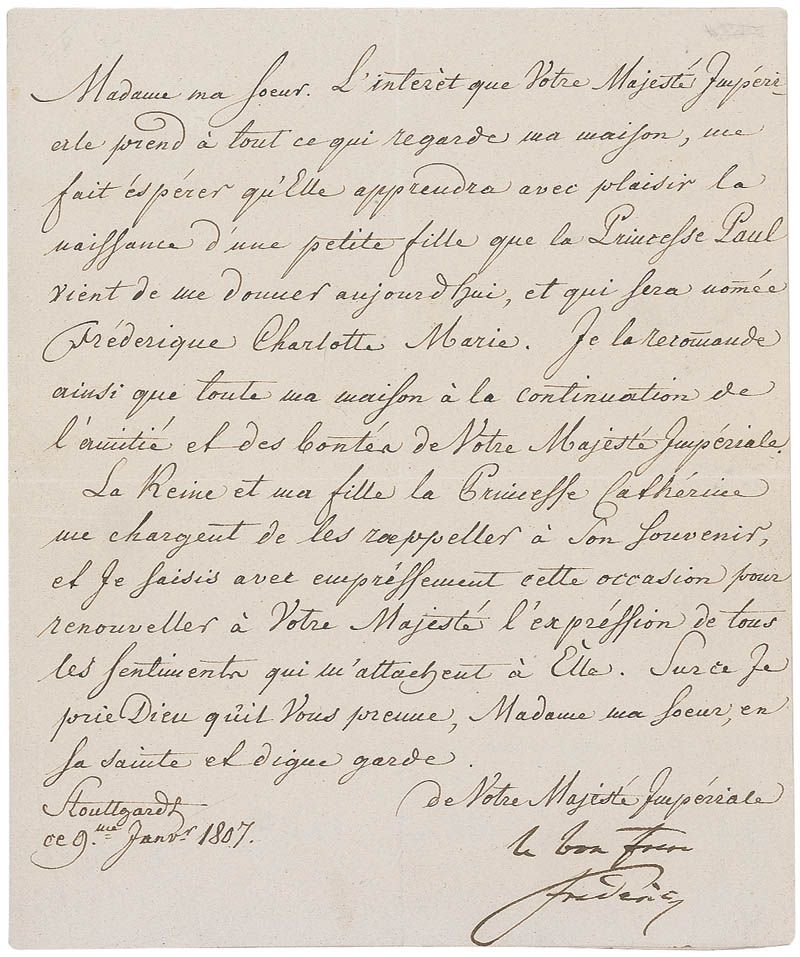 Madame ma Soeur. L'interèt que Votre Majesté Impéri-
ale prend à tout ce qui regarde ma maison, me
fait éspérer qu'Elle apprendra avec plaisir la
naissance d'une petite fille que la Princesse Paul
vient de me donner aujourd'hui, et qui sera nom̄ée
Fréderique Charlotte Marie. Je la recom̄ande
ainsi que toute ma maison à la continuation de
l'amitié et des bontés de Votre Majesté Impériale.
La Reine et ma fille la Princesse Cathérine
me chargent de les rappeller à Son souvenir,
et Je saisis avec empréssement cette occasion pour
renouveller à Votre Majesté l'expréssion de tous
les sentiments qui m'attachent à Elle. Sur ce Je
prie Dieu qu'il Vous prenne, Madame ma Soeur, en
sa sainte et digne garde.
de Votre Majésté Impériale
Stouttgardt
ce 9.me Janvr 1807.
le bon frere
Frederic